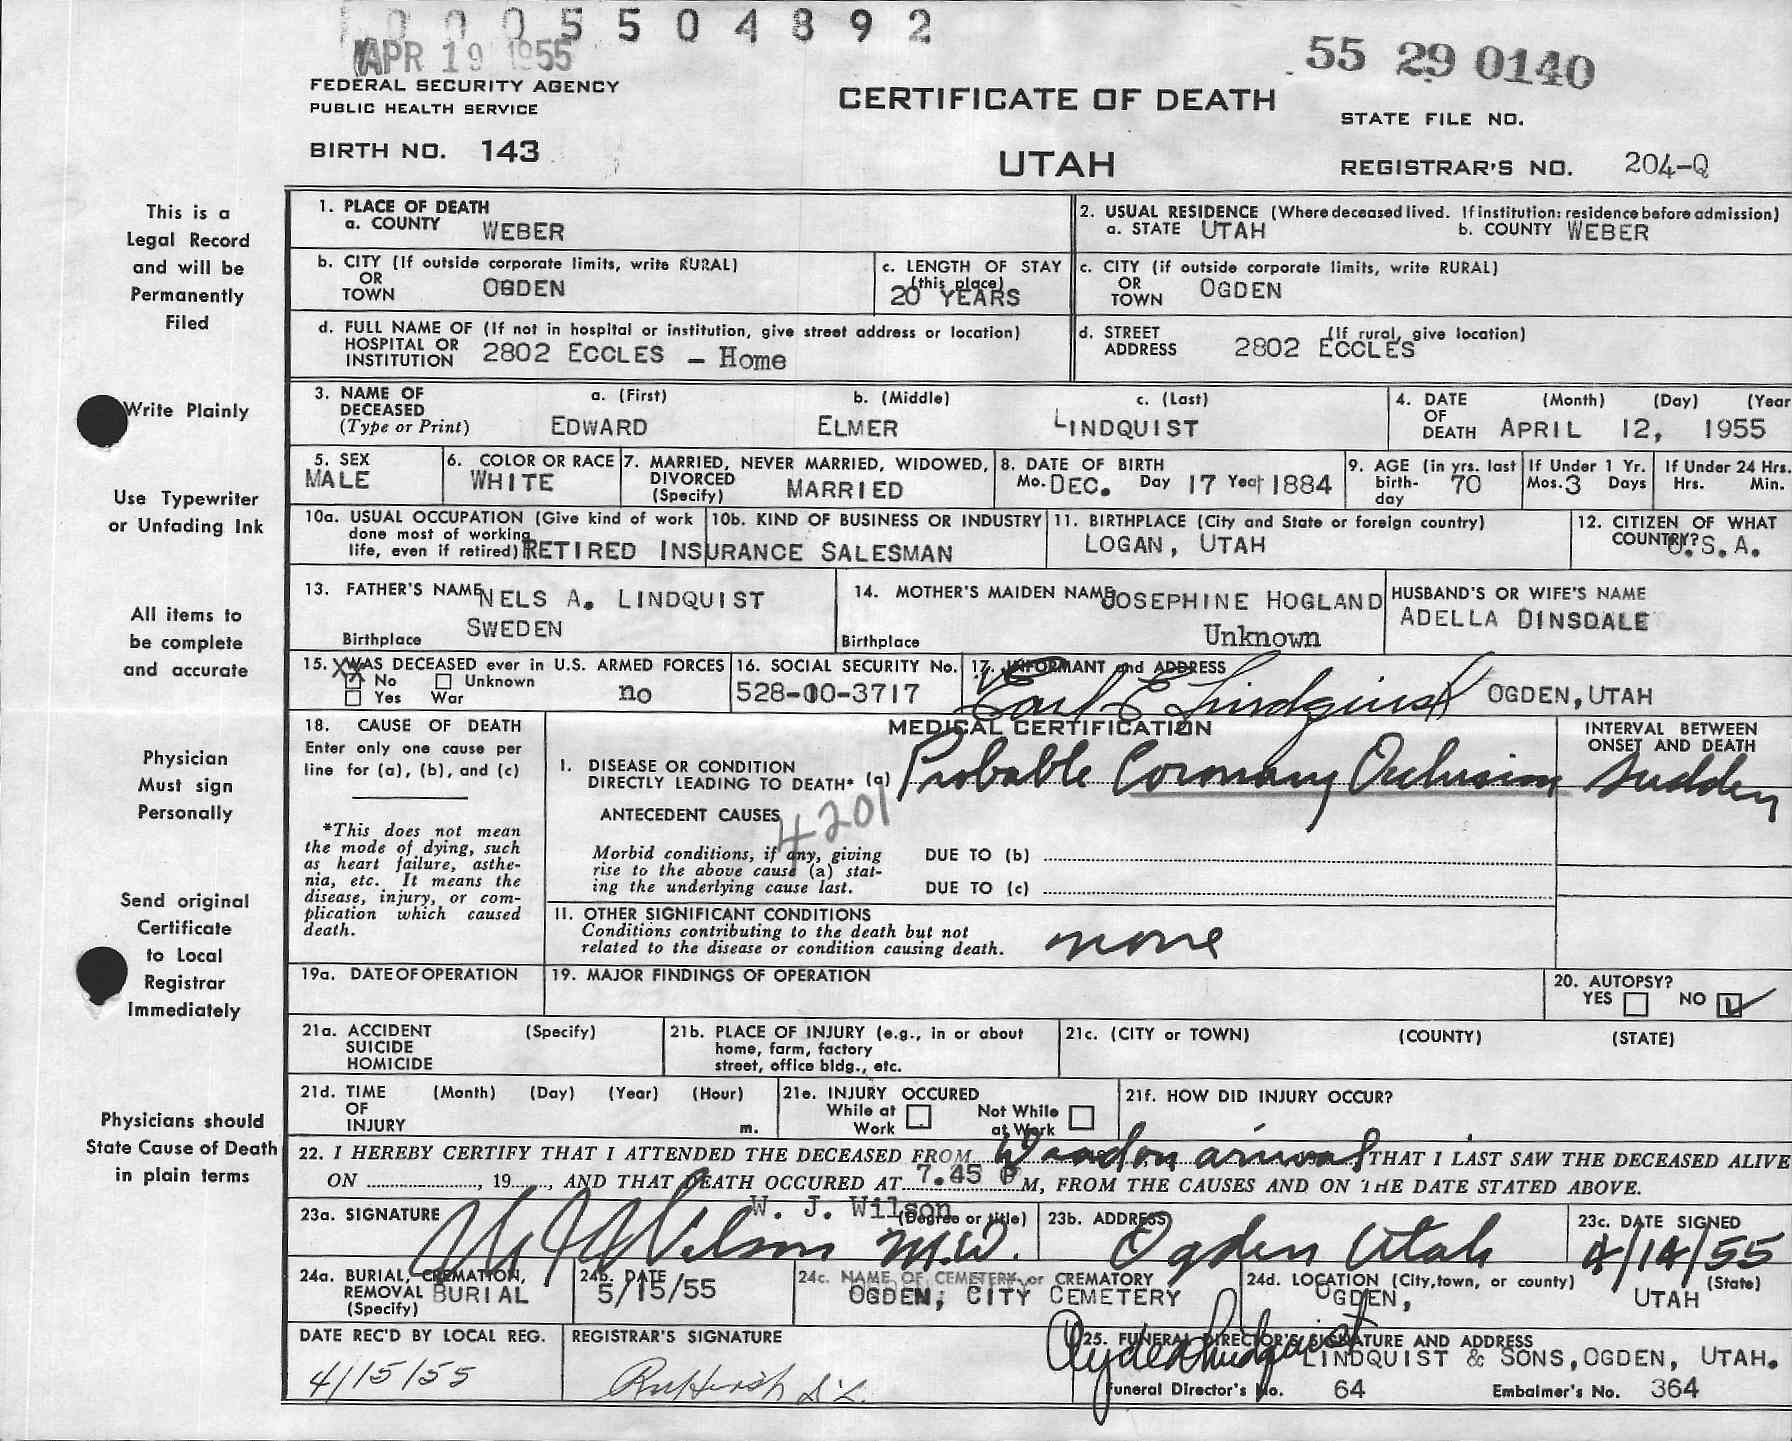 0005504892
APR 19 1955
55 29 0140
FEDERAL SECURITY AGENCY
PUBLIC HEALTH SERVICE
CERTIFICATE OF DEATH
STATE FILE NO.
BIRTH NO. 143
UTAH
REGISTRAR'S NO. 204-Q
This is a
Legal Record
and will be
Permanently
Filed
Write Plainly
Use Typewriter
or Unfading Ink
All items to
be complete
and accurate
Physician
Must sign
Personally
Send original
Certificate
to Local
Registrar
Immediately
Physicians should
State Cause of Death
in plain terms
1. PLACE OF DEATH
a. COUNTY WEBER
2. USUAL RESIDENCE (Where deceased lived. If institution: residence before admission)
a. STATE UTAH b. COUNTY WEBER
b. CITY (If outside corporate limits, write RURAL)
OR
TOWN OGDEN
c. LENGTH OF STAY
(this place)
20 YEARS
c. CITY (if outside corporate limits, write RURAL)
OR
TOWN OGDEN
d. FULL NAME OF (If not in hospital or institution, give street address or location)
HOSPITAL OR
INSTITUTION 2802 ECCLES - Home
d. STREET (If rural, give location)
ADDRESS 2802 ECCLES
3. NAME OF
DECEASED
(Type or Print)
a. (First) b. (Middle) c. (Last)
EDWARD ELMER LINDQUIST
4. DATE (Month) (Day) (Year
OF
DEATH APRIL 12, 1955
5. SEX
MALE
6. COLOR OR RACE
WHITE
7. MARRIED, NEVER MARRIED, WIDOWED,
DIVORCED
(Specify) MARRIED
8. DATE OF BIRTH
Mo. DEC. Day 17 Year 1884
9. AGE (in yrs. last
birth-
day 70
If Under 1 Yr.
Mos. 3 Days
If Under 24 Hrs.
Hrs. Min.
10a. USUAL OCCUPATION (Give kind of work
done most of working
life, even if retired) RETIRED INSURANCE SALESMAN
10b. KIND OF BUSINESS OR INDUSTRY
11. BIRTHPLACE (City and State or foreign country)
LOGAN, UTAH
12. CITIZEN OF WHAT
COUNTRY? U.S.A.
13. FATHER'S NAME NELS A. LINDQUIST
Birthplace SWEDEN
14. MOTHER'S MAIDEN NAME JOSEPHINE HOGLAND
Birthplace Unknown
HUSBAND'S OR WIFE'S NAME
ADELLA DINSDALE
15. WAS DECEASED ever in U.S. ARMED FORCES
No Unknown
Yes War no
16. SOCIAL SECURITY No.
528-00-3717
17. INFORMANT and ADDRESS
Earl E Lindquist OGDEN, UTAH
18. CAUSE OF DEATH
Enter only one cause per
line for (a), (b), and (c)
*This does not mean
the mode of dying, such
as heart failure, asthe-
nia, etc. It means the
disease, injury, or com-
plication which caused
death.
MEDICAL CERTIFICATION
INTERVAL BETWEEN
ONSET AND DEATH
I. DISEASE OR CONDITION
DIRECTLY LEADING TO DEATH* (a) Probable Coronary Occlusion Sudden
4201
ANTECEDENT CAUSES
Morbid conditions, if any, giving
rise to the above cause (a) stat-
ing the underlying cause last.
DUE TO (b)
DUE TO (c)
II. OTHER SIGNIFICANT CONDITIONS
Conditions contributing to the death but not
related to the disease or condition causing death.
none
19a. DATE OF OPERATION
19. MAJOR FINDINGS OF OPERATION
20. AUTOPSY?
YES NO
21a. ACCIDENT (Specify)
SUICIDE
HOMICIDE
21b. PLACE OF INJURY (e.g., in or about
home, farm, factory
street, office bldg., etc.
21c. (CITY or TOWN) (COUNTY) (STATE)
21d. TIME (Month) (Day) (Year) (Hour)
OF
INJURY m.
21e. INJURY OCCURED
While at Not While
Work at Work
21f. HOW DID INJURY OCCUR?
22. I HEREBY CERTIFY THAT I ATTENDED THE DECEASED FROM on arrival THAT I LAST SAW THE DECEASED ALIVE
ON , 19 , AND THAT DEATH OCCURED AT 7.45 P M, FROM THE CAUSES AND ON THE DATE STATED ABOVE.
23a. SIGNATURE W. J. Wilson (Degree or title)
W J Wilson M.D.
23b. ADDRESS
Ogden Utah
23c. DATE SIGNED
4/14/55
24a. BURIAL, CREMATION,
REMOVAL BURIAL
(Specify)
24b. DATE
5/15/55
24c. NAME OF CEMETERY or CREMATORY
OGDEN, CITY CEMETERY
24d. LOCATION (City, town, or county) (State)
OGDEN, UTAH
DATE REC'D BY LOCAL REG.
4/15/55
REGISTRAR'S SIGNATURE
25. FUNERAL DIRECTOR'S SIGNATURE AND ADDRESS
LINDQUIST & SONS, OGDEN, UTAH.
Funeral Director's No. 64 Embalmer's No. 364